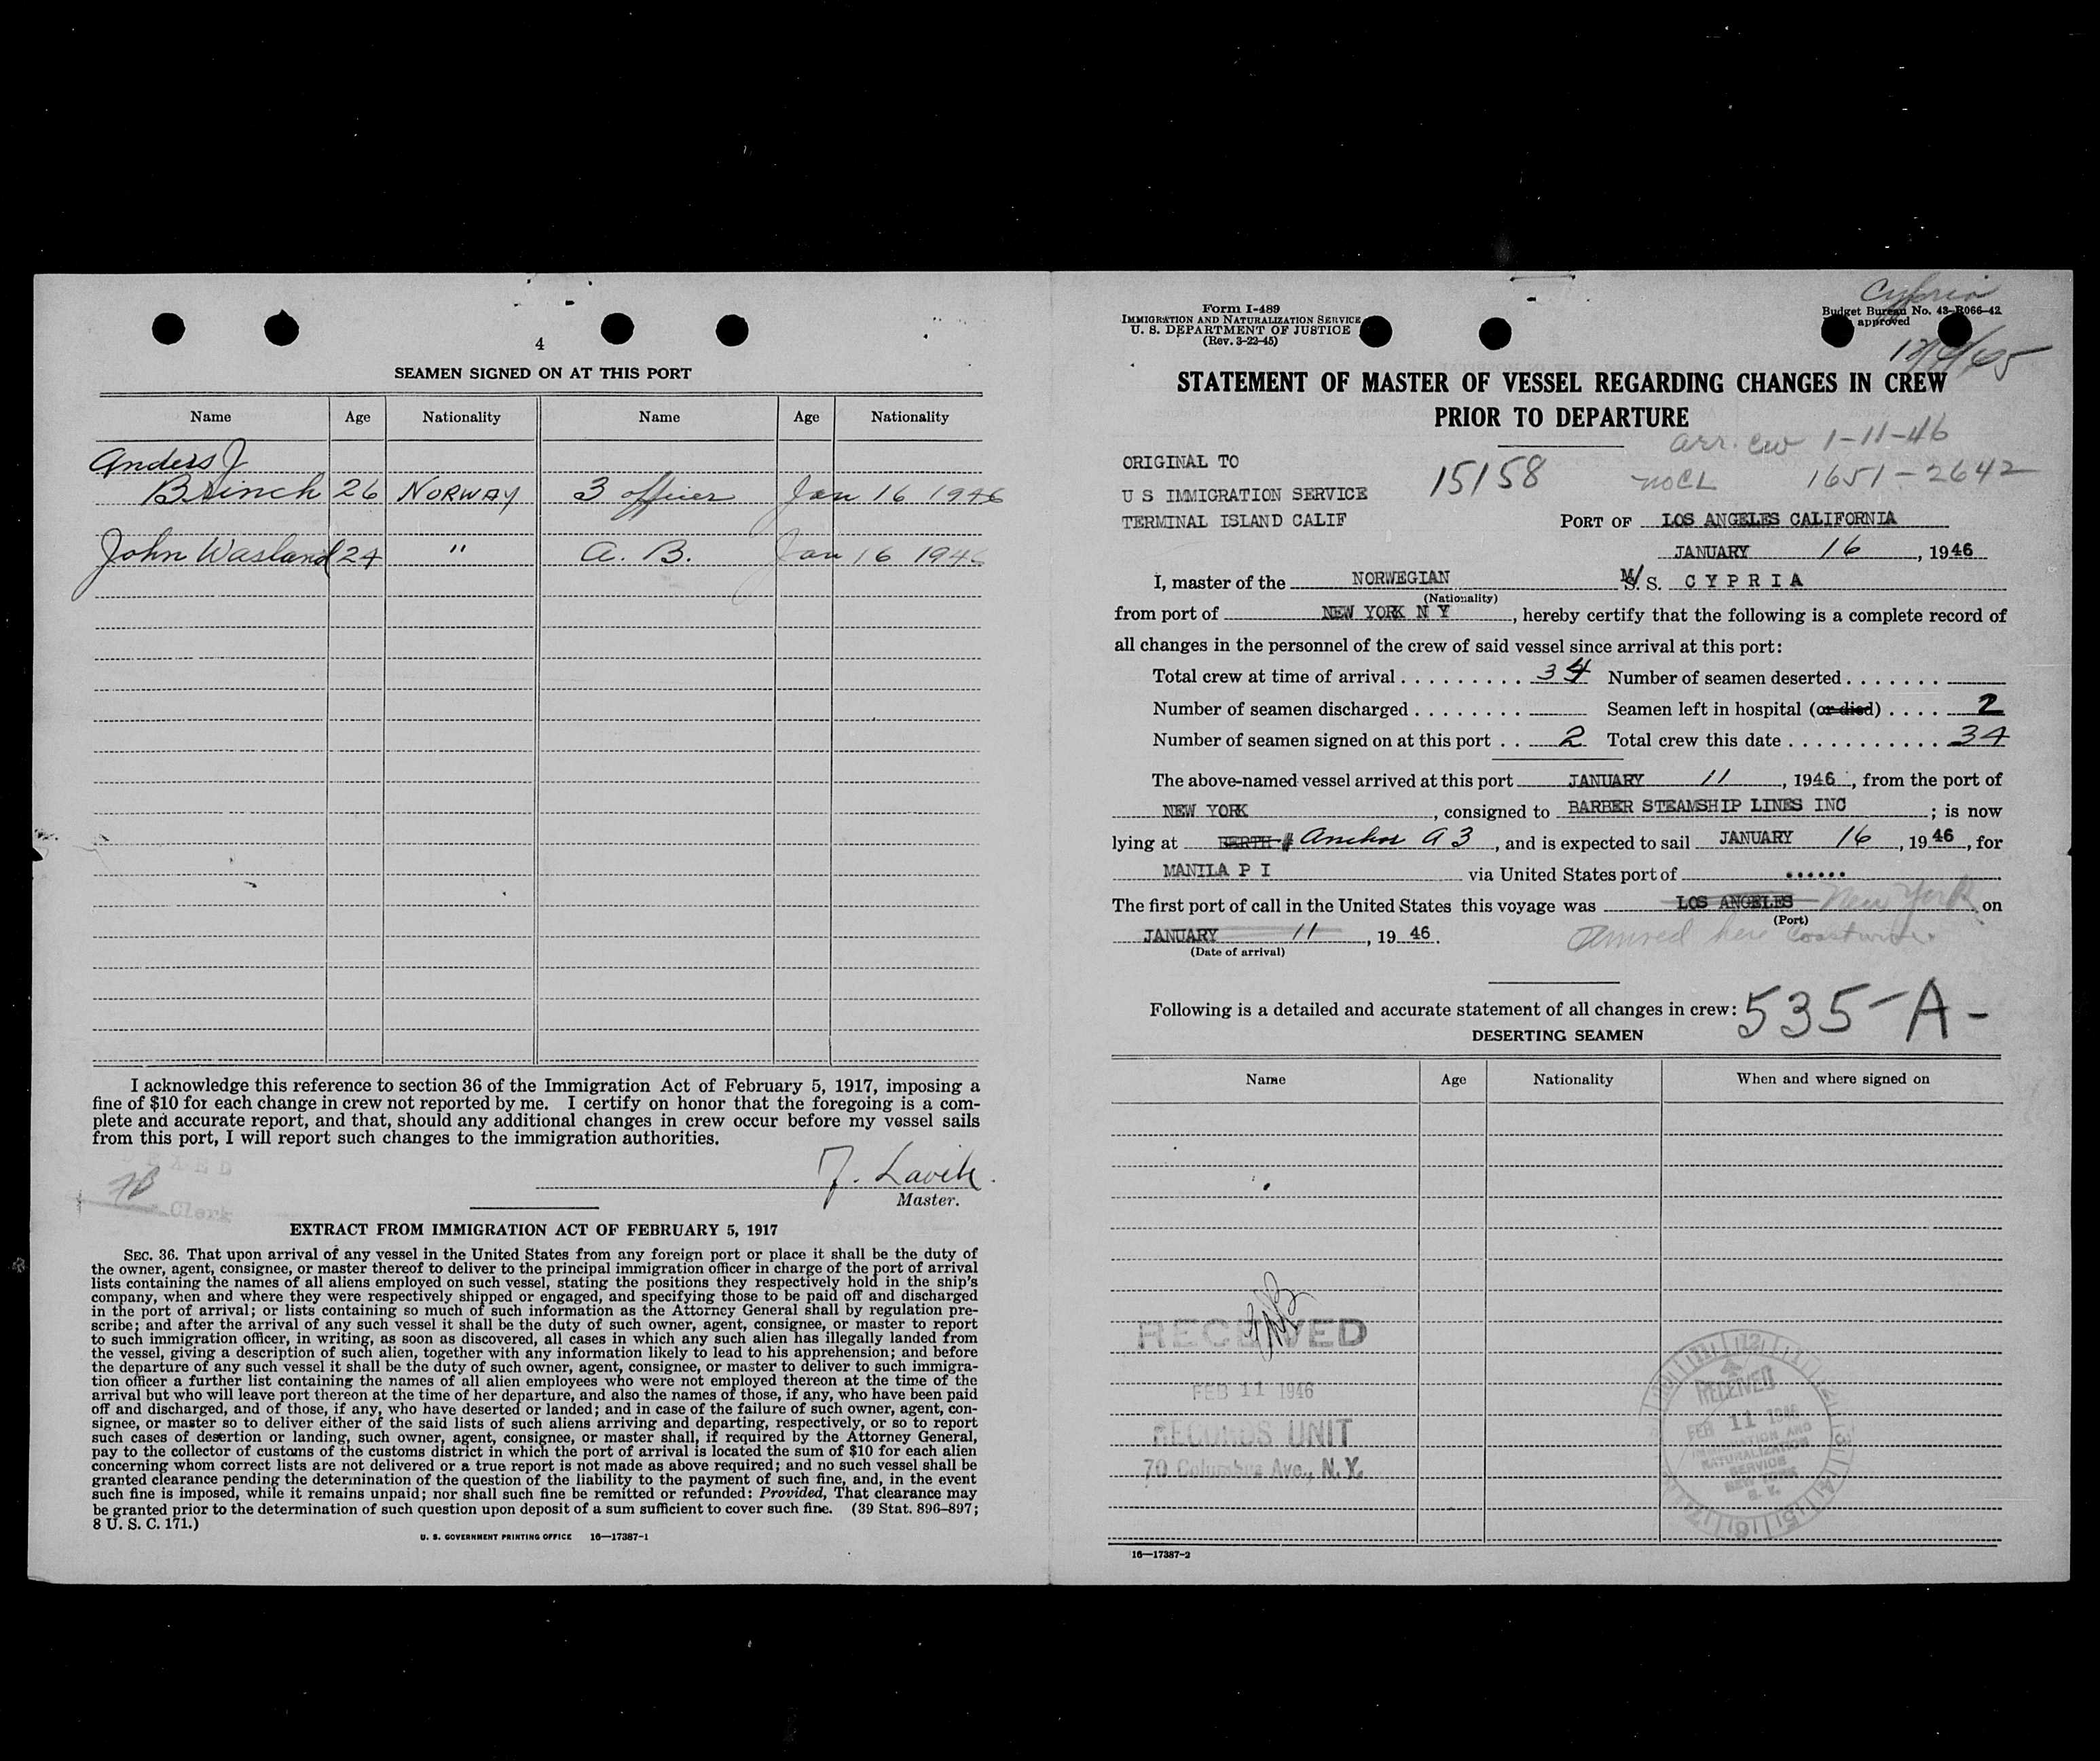 4
SEAMEN SIGNED ON AT THIS PORT
Name Age Nationality Name Age Nationality
Anders J
Brinch 26 NORWAY 3 officer Jan 16 1946
John Wasland 24 " A. B. Jan 16 1946
I acknowledge this reference to section 36 of the Immigration Act of February 5, 1917, imposing a
fine of $10 for each change in crew not reported by me. I certify on honor that the foregoing is a com-
plete and accurate report, and that, should any additional changes in crew occur before my vessel sails
from this port, I will report such changes to the immigration authorities.
Clerk
Master.
EXTRACT FROM IMMIGRATION ACT OF FEBRUARY 5, 1917
SEC. 36. That upon arrival of any vessel in the United States from any foreign port or place it shall be the duty of
the owner, agent, consignee, or master thereof to deliver to the principal immigration officer in charge of the port of arrival
lists containing the names of all aliens employed on such vessel, stating the positions they respectively hold in the ship's
company, when and where they were respectively shipped or engaged, and specifying those to be paid off and discharged
in the port of arrival; or lists containing so much of such information as the Attorney General shall by regulation pre-
scribe; and after the arrival of any such vessel it shall be the duty of such owner, agent, consignee, or master to report
to such immigration officer, in writing, as soon as discovered, all cases in which any such alien has illegally landed from
the vessel, giving a description of such alien, together with any information likely to lead to his apprehension; and before
the departure of any such vessel it shall be the duty of such owner, agent, consignee, or master to deliver to such immigra-
tion officer a further list containing the names of all alien employees who were not employed thereon at the time of the
arrival but who will leave port thereon at the time of her departure, and also the names of those, if any, who have been paid
off and discharged, and of those, if any, who have deserted or landed; and in case of the failure of such owner, agent, con-
signee, or master so to deliver either of the said lists of such aliens arriving and departing, respectively, or so to report
such cases of desertion or landing, such owner, agent, consignee, or master shall, if required by the Attorney General,
pay to the collector of customs of the customs district in which the port of arrival is located the sum of $10 for each alien
concerning whom correct lists are not delivered or a true report is not made as above required; and no such vessel shall be
granted clearance pending the determination of the question of the liability to the payment of such fine, and, in the event
such fine is imposed, while it remains unpaid; nor shall such fine be remitted or refunded: Provided, That clearance may
be granted prior to the determination of such question upon deposit of a sum sufficient to cover such fine. (39 Stat. 896-897;
8 U. S. C. 171.)
U. S. GOVERNMENT PRINTING OFFICE 16—17387-1
Cypria
Form I-489
IMMIGRATION AND NATURALIZATION SERVICE
U. S. DEPARTMENT OF JUSTICE
(Rev. 3-22-45)
Budget Bureau No. 43-R066-42
approved
STATEMENT OF MASTER OF VESSEL REGARDING CHANGES IN CREW
PRIOR TO DEPARTURE
arr. cw 1-11-46
ORIGINAL TO
15158 no CL 1651-2642
U S IMMIGRATION SERVICE
TERMINAL ISLAND CALIF
PORT OF LOS ANGELES CALIFORNIA
JANUARY 16, 1946
I, master of the NORWEGIAN M/S. S. CYPRIA
(Nationality)
from port of NEW YORK N Y, hereby certify that the following is a complete record of
all changes in the personnel of the crew of said vessel since arrival at this port:
Total crew at time of arrival . . . . . . . . . 34 Number of seamen deserted . . . . . . .
Number of seamen discharged . . . . . . . Seamen left in hospital (or died) . . . . 2
Number of seamen signed on at this port . . 2 Total crew this date . . . . . . . . . . . . 34
The above-named vessel arrived at this port JANUARY 11, 1946, from the port of
NEW YORK, consigned to BARBER STEAMSHIP LINES INC; is now
lying at BERTH # Anchor A 3, and is expected to sail JANUARY 16, 1946, for
MANILA P I via United States port of ......
The first port of call in the United States this voyage was LOS ANGELES New York on
(Port)
JANUARY 11, 1946. Arrived here Coastwise.
(Date of arrival)
Following is a detailed and accurate statement of all changes in crew: 535-A-
DESERTING SEAMEN
Name Age Nationality When and where signed on
RECEIVED
FEB 11 1946
RECORDS UNIT
70 Columbus Ave., N. Y.
RECEIVED
FEB 11 1946
IMMIGRATION AND
NATURALIZATION
SERVICE
NEW YORK
N. Y.
16—17387-2